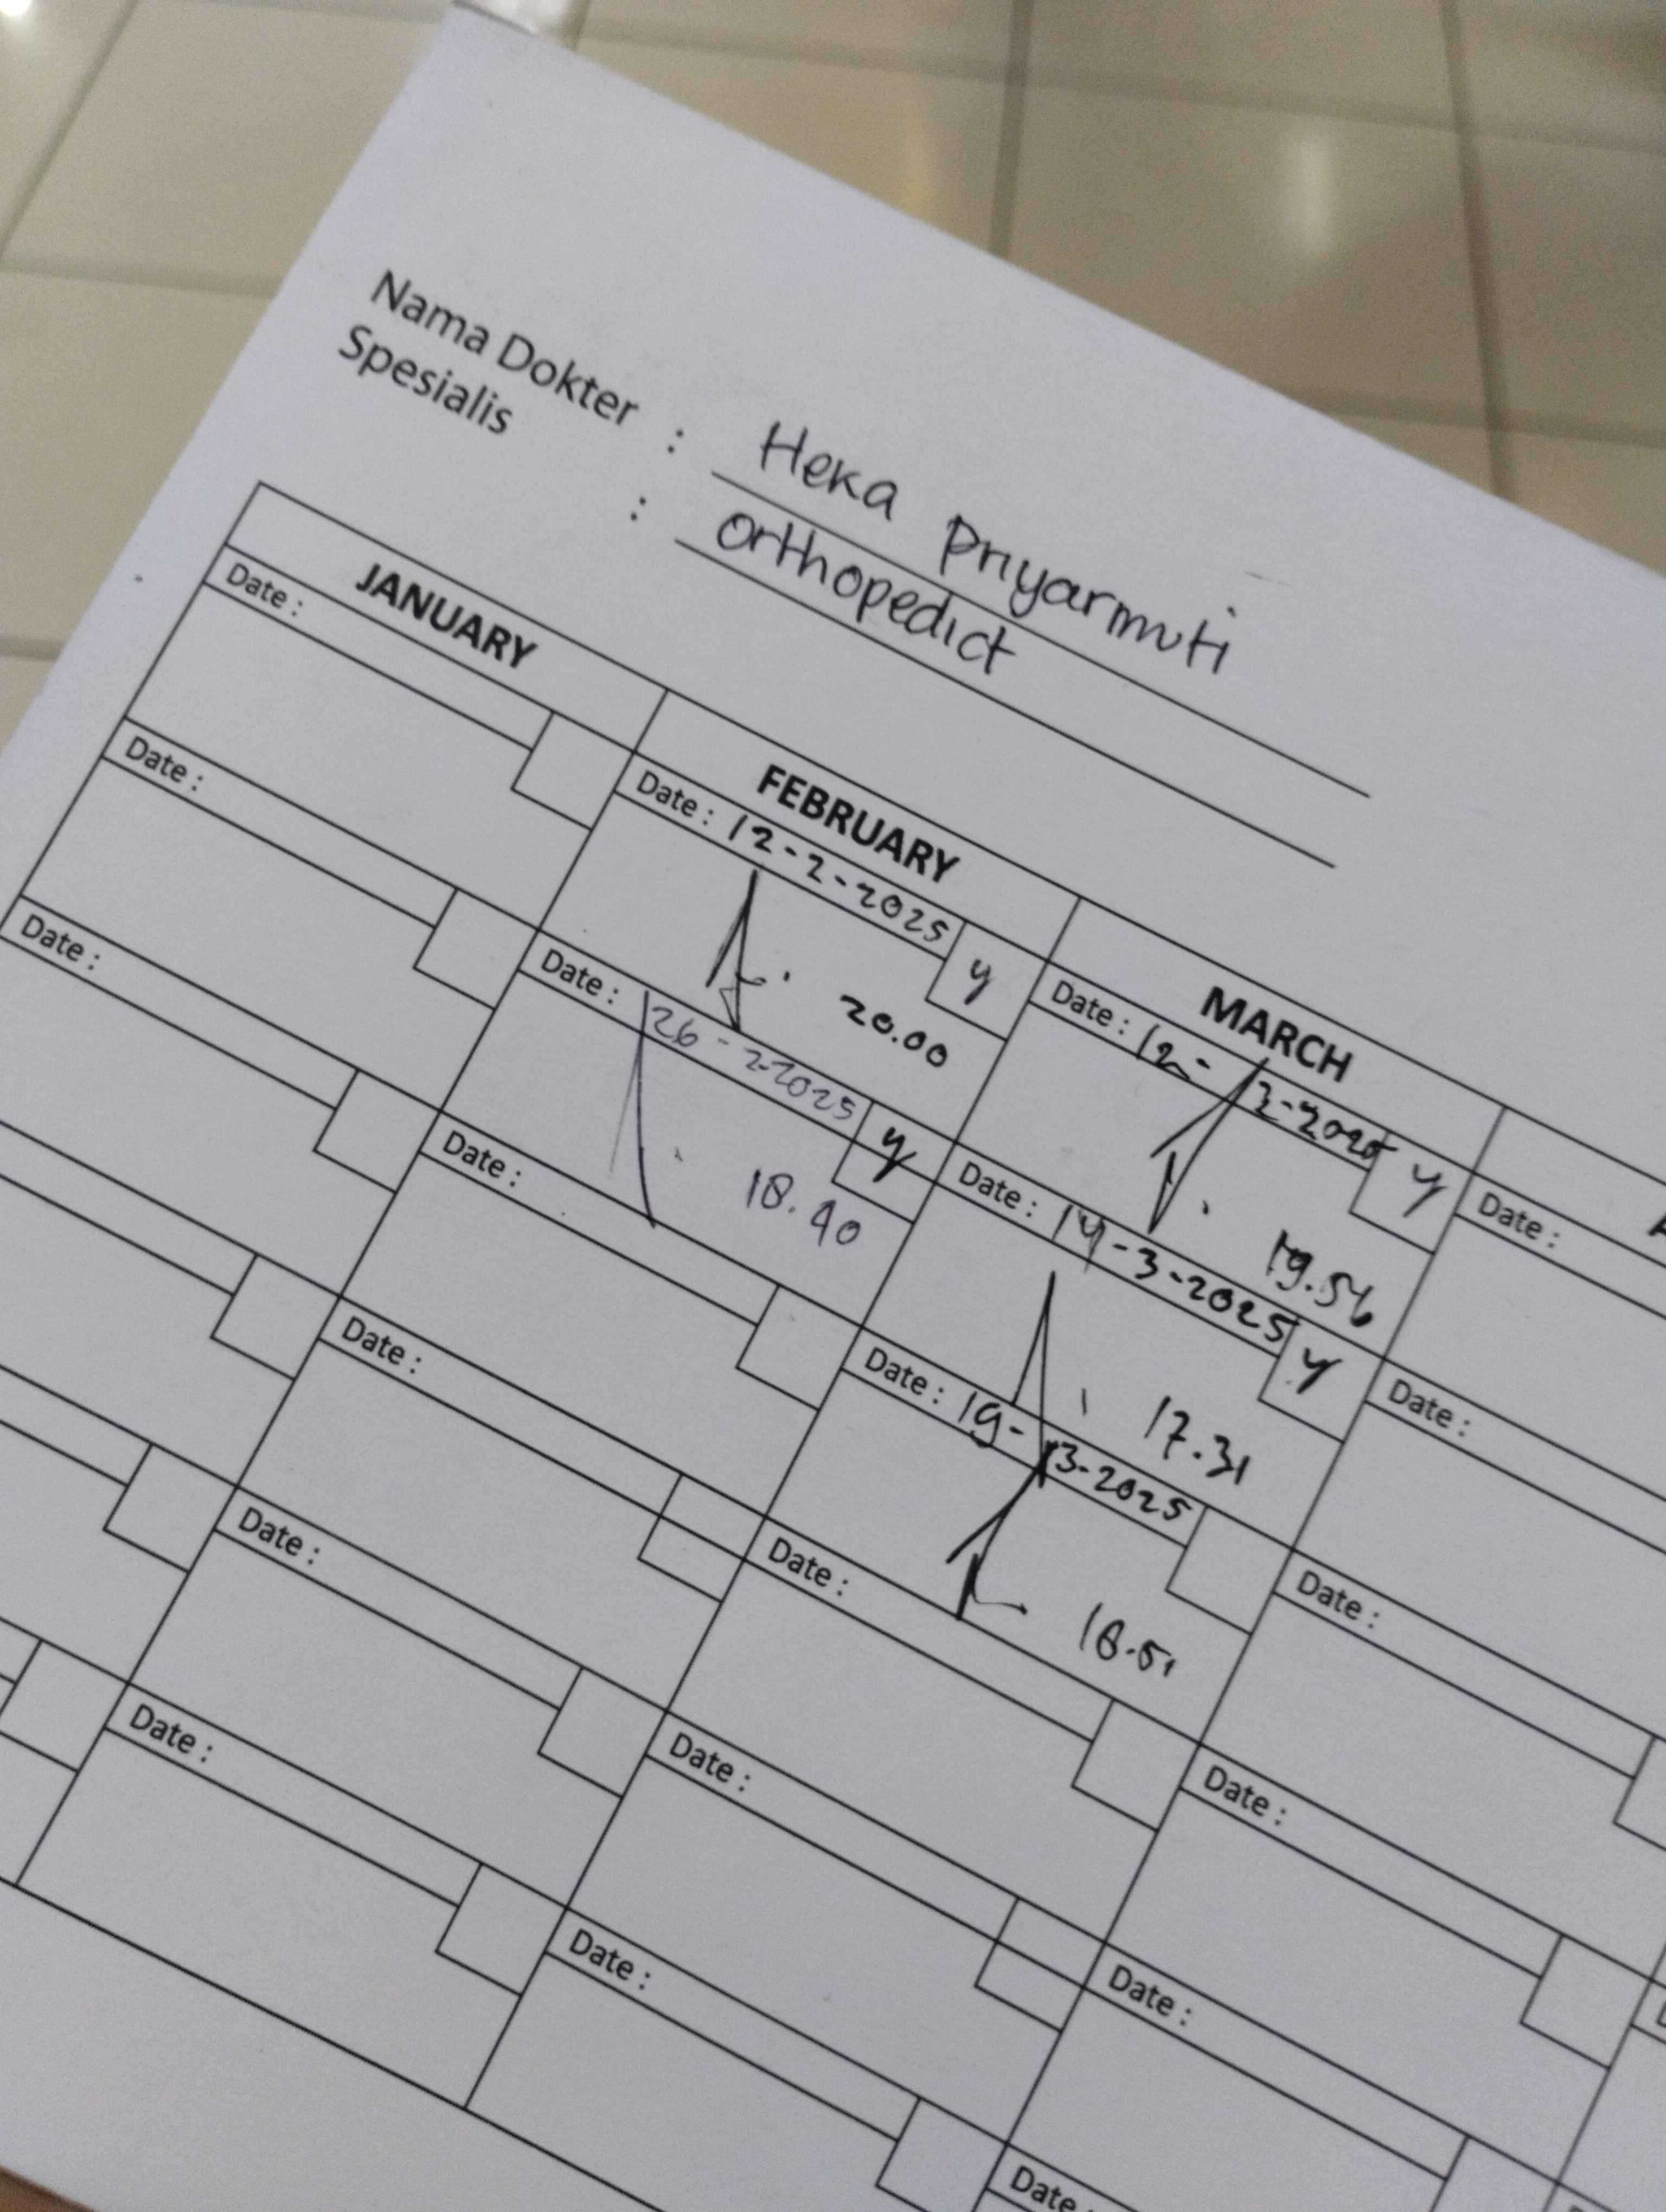 Nama Dokter : Heka Priyarmuti
Spesialis : Orthopedict
JANUARY FEBRUARY MARCH
Date : Date : 12-2-2025 y Date : 12-3-2025 y Date :
20.00 19.56
Date : Date : 26-2-2025 y Date : 14-3-2025 y Date :
18.40 17.31
Date : Date : Date : 19-3-2025 Date :
18.51
Date : Date : Date :
Date : Date : Date :
Date : Date :
Date :